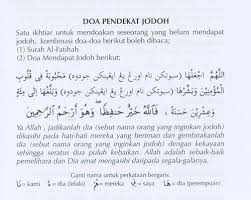 DOA PENDEKAT JODOH
Satu ikhtiar untuk mendoakan seseorang yang belum mendapat
jodoh, kombinasi doa-doa berikut boleh dibaca;
(1) Surah Al-Fatihah.
(2) Doa Mendapat Jodoh berikut:
اللَّهُمَّ اجْعَلْهَا (سبوتكن نام اورڠ يڠ ايڠينكن جودوه) مَحْبُوْبَةً فِى قُلُوْبِ
الْمُؤْمِنِيْنَ وَبَشِّرْهَا (سبوتكن نام اورڠ يڠ ايڠينكن جودوه)
وَعِشْرِيْنَ حَسَنَةً ، فَاللَّهُ خَيْرٌ حَفِظًا وَهُوَ أَرْحَمُ الرَّاحِمِيْنَ
Ya Allah , jadikanlah dia (sebut nama orang yang inginkan jodoh)
dikasihi pada hati-hati mereka yang beriman dan gembirakanlah
dia (sebut nama orang yang inginkan jodoh) dengan kekayaan
sehingga seratus dua puluh kebaikan. Allah adalah sebaik-baik
memelihara dan Dia amat mengasihi daripada segala-galanya.
Ganti nama untuk perkataan bergaris.
= kami = dia (lelaki) = mereka = saya = dia (perempuan)